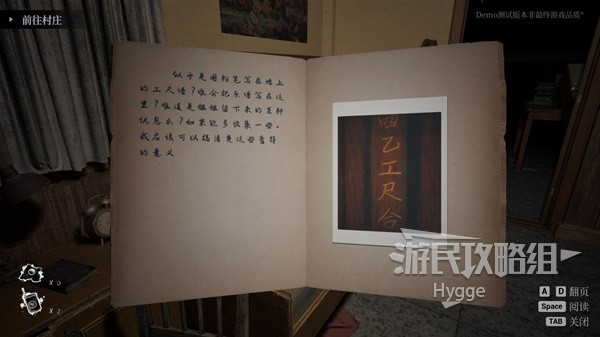 前往村庄
Demo测试版本非最终游戏品质*
似乎是用粉笔写在墙上
的工尺谱?谁会把乐谱写在这
里?难道是姐姐留下来的某种
讯息么?如果能多收集一些,
我应该可以搞清楚这些音符
的意义
四乙工尺合
游民攻略组
Hygge
X 0
X 2
A D 翻页
Space 阅读
TAB 关闭